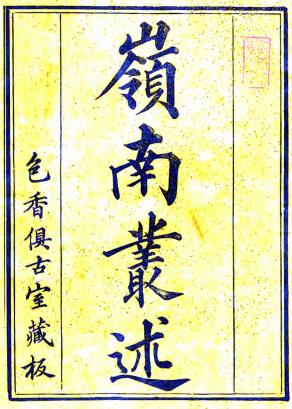 嶺南叢述
色香俱古室藏板